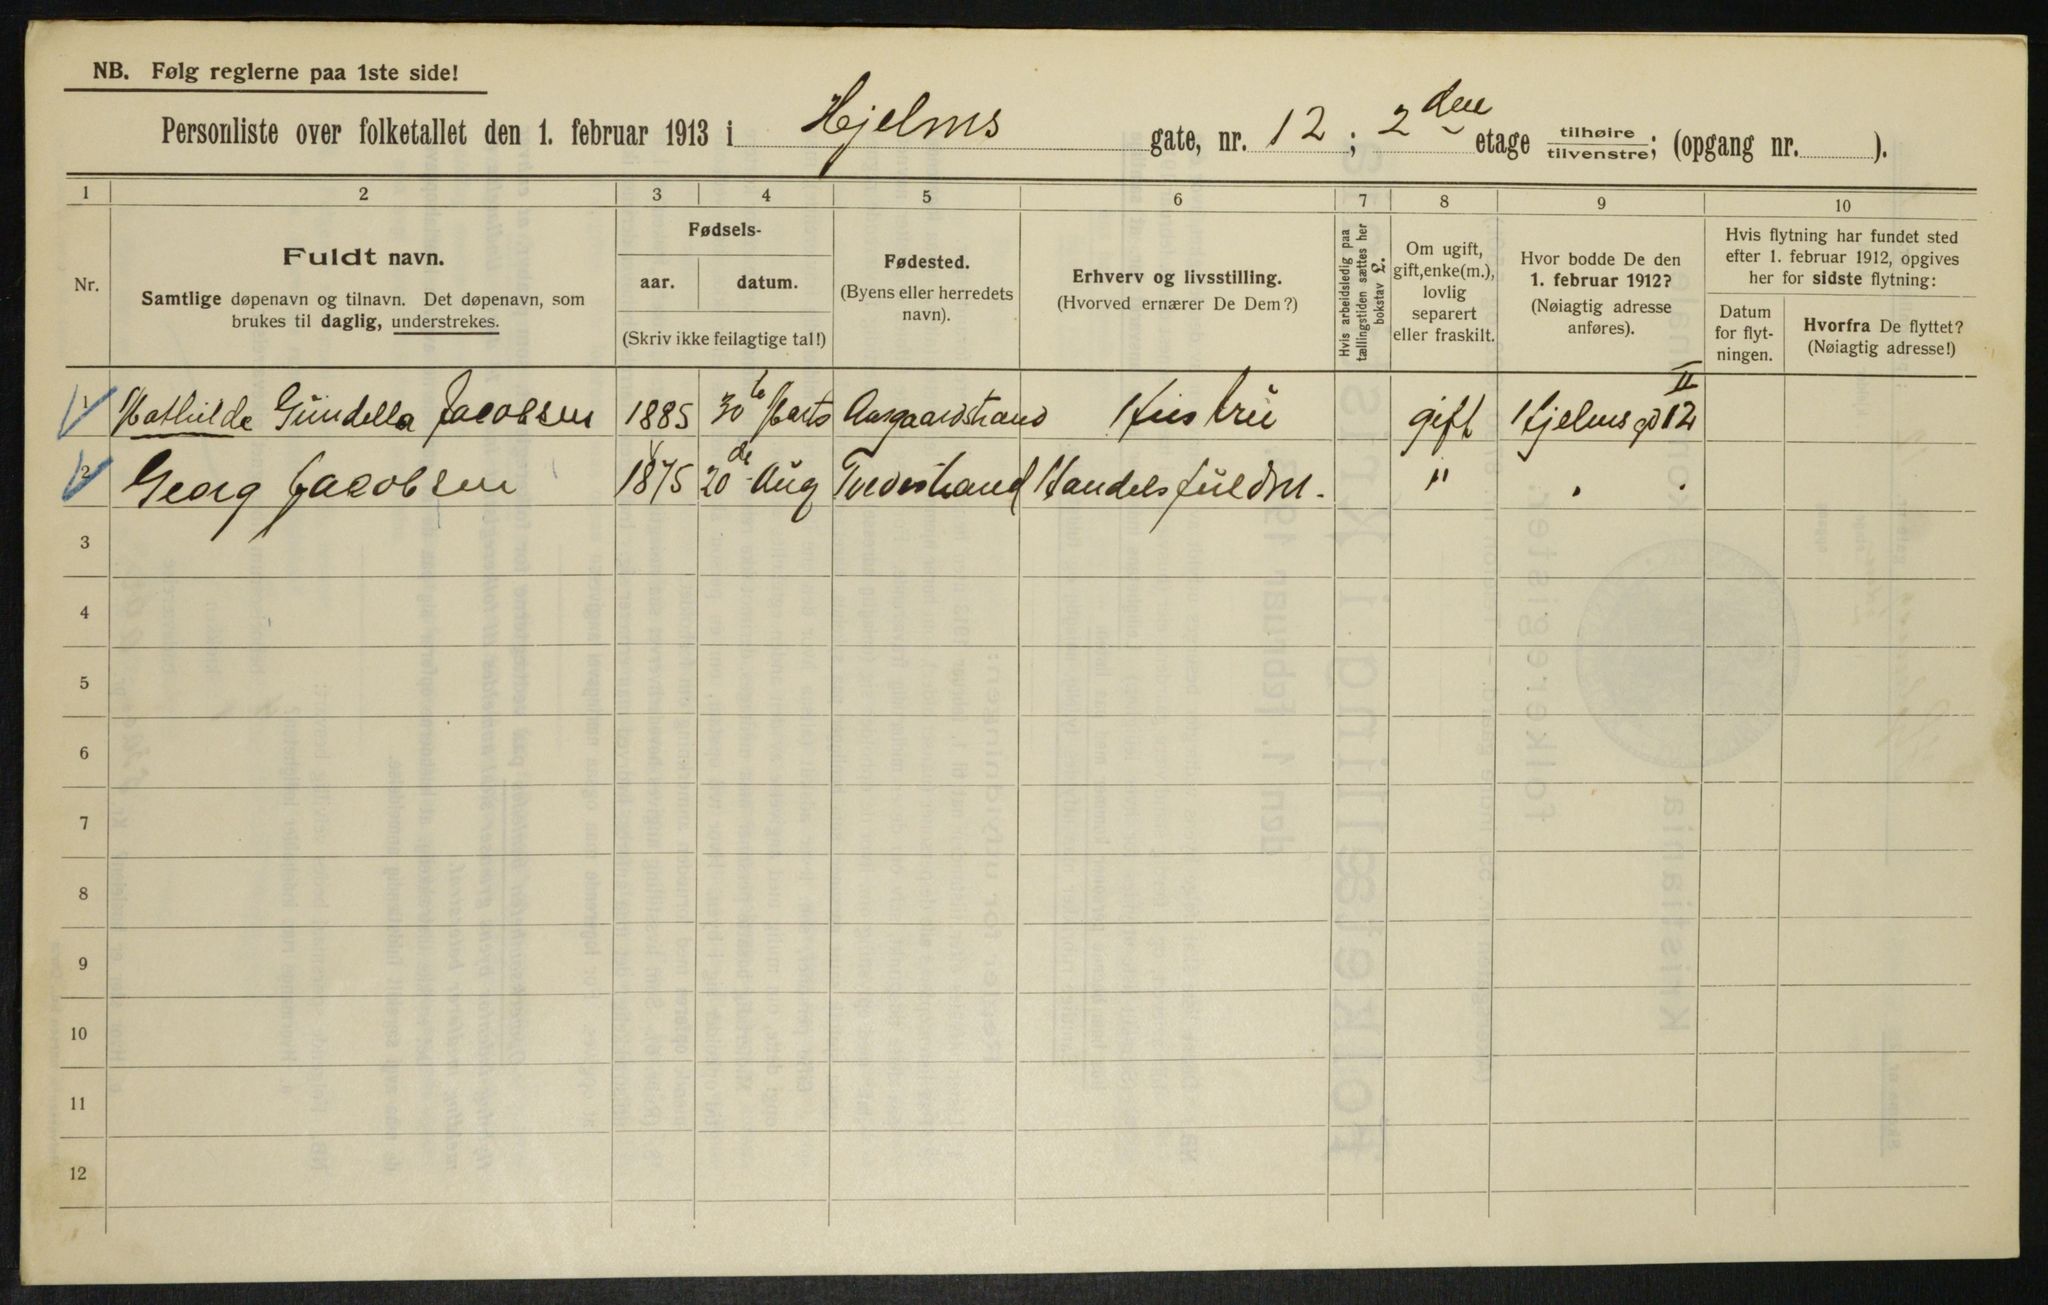 NB. Følg reglerne paa 1ste side!
Personliste over folketallet den 1. februar 1913 i Hjelms gate, nr. 12; 2den etage tilhøire tilvenstre; (opgang nr. ).
1 2 3 4 5 6 7 8 9 10
Nr.
Fuldt navn.
Samtlige døpenavn og tilnavn. Det døpenavn, som
brukes til daglig, understrekes.
Fødsels-
aar. datum.
(Skriv ikke feilagtige tal!)
Fødested.
(Byens eller herredets
navn).
Erhverv og livsstilling.
(Hvorved ernærer De Dem?)
Hvis arbeidsledig paa
tællingstiden sættes her
bokstav L.
Om ugift,
gift, enke(m.),
lovlig
separert
eller fraskilt.
Hvor bodde De den
1. februar 1912?
(Nøiagtig adresse
anføres).
Hvis flytning har fundet sted
efter 1. februar 1912, opgives
her for sidste flytning:
Datum
for flyt-
ningen.
Hvorfra De flyttet?
(Nøiagtig adresse!)
II
1 Mathilde Gündella Jacobsen 1885 30te Marts Aasgaardstrand Hustrü gift Hjelms gd 12
2 Georg Jacobsen 1875 20de Aug Tvedestrand Handelsfüldm. " . .
3
4
5
6
7
8
9
10
11
12